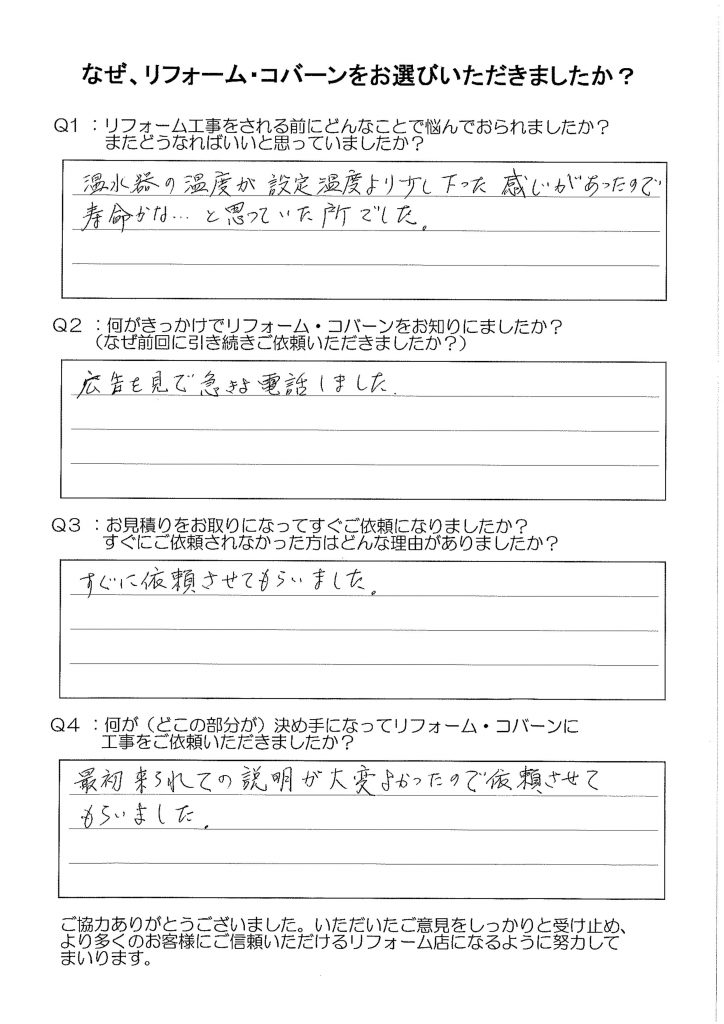 なぜ、リフォーム・コバーンをお選びいただきましたか？
Q1 ：リフォーム工事をされる前にどんなことで悩んでおられましたか？
またどうなればいいと思っていましたか？
温水器の温度が設定温度より少し下った感じがあったので
寿命かな…と思っていた所でした。
Q2 ：何がきっかけでリフォーム・コバーンをお知りにましたか？
（なぜ前回に引き続きご依頼いただきましたか？）
広告を見て急きょ電話しました。
Q3 ：お見積りをお取りになってすぐご依頼になりましたか？
すぐにご依頼されなかった方はどんな理由がありましたか？
すぐに依頼させてもらいました。
Q4 ：何が（どこの部分が）決め手になってリフォーム・コバーンに
工事をご依頼いただきましたか？
最初来られての説明が大変よかったので依頼させて
もらいました。
ご協力ありがとうございました。いただいたご意見をしっかりと受け止め、
より多くのお客様にご信頼いただけるリフォーム店になるように努力して
まいります。